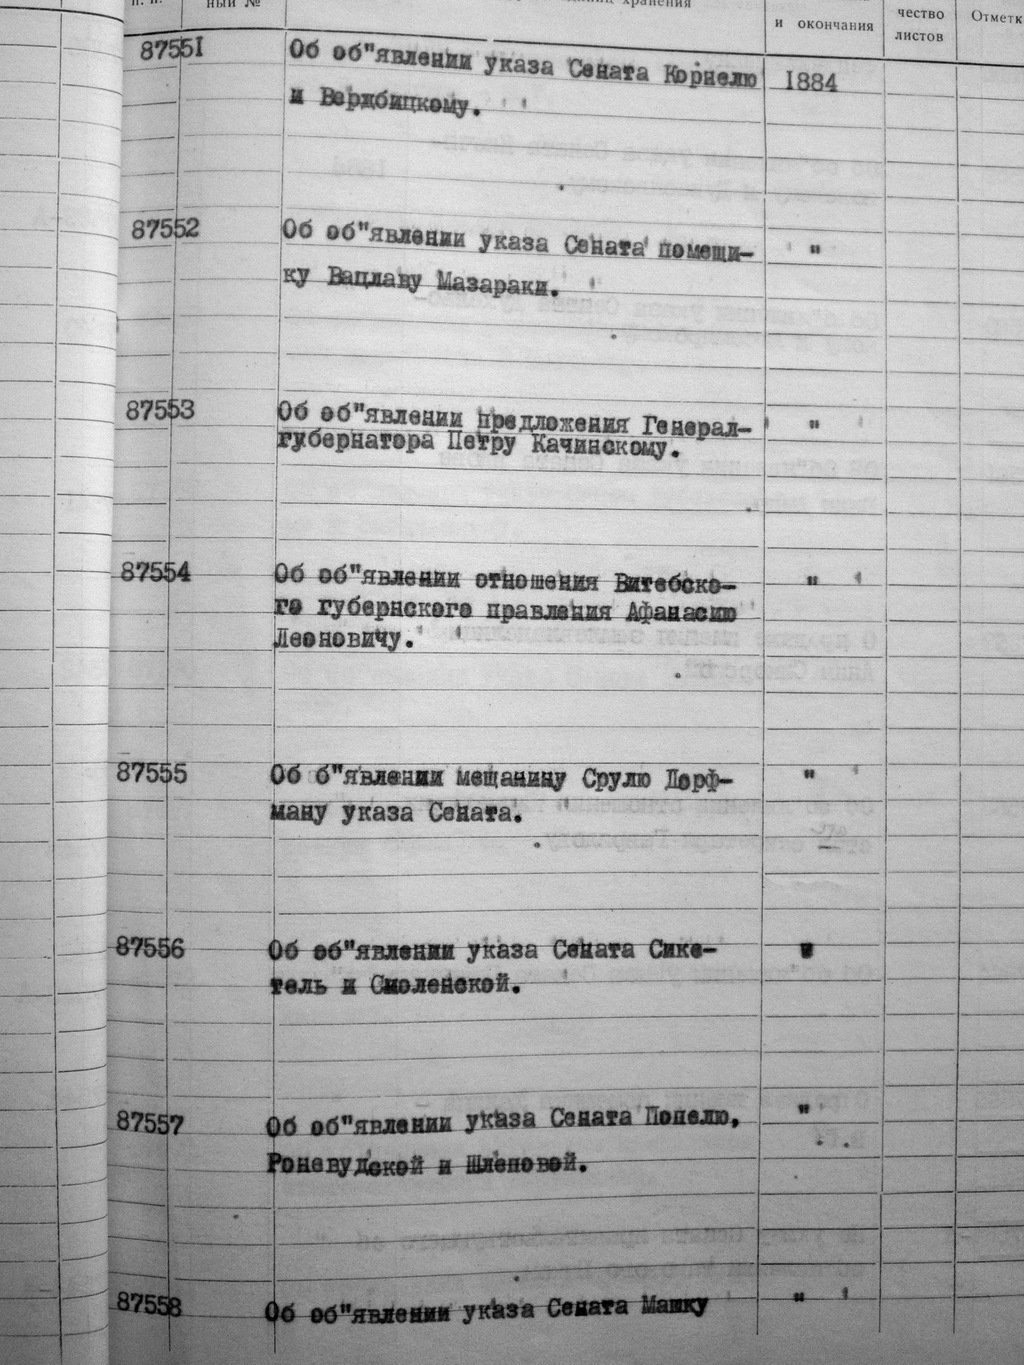 ный №
хранения
и окончания
чество
листов
Отметк
87551 Об об"явлении указа Сената Корнелю 1884
и Вердбицкому.
87552 Об об"явлении указа Сената помещи- "
ку Вацлаву Мазараки.
87553 Об об"явлении предложения Генерал- "
губернатора Петру Качинскому.
87554 Об об"явлении отношения Витебско- "
го губернского правления Афанасию
Леоновичу.
87555 Об б"явлении мещанину Срулю Дорф- "
ману указа Сената.
87556 Об об"явлении указа Сената Сике- "
тель и Смоленской.
87557 Об об"явлении указа Сената Попелю, "
Роневудской и Шленовой.
87558 Об об"явлении указа Сената "